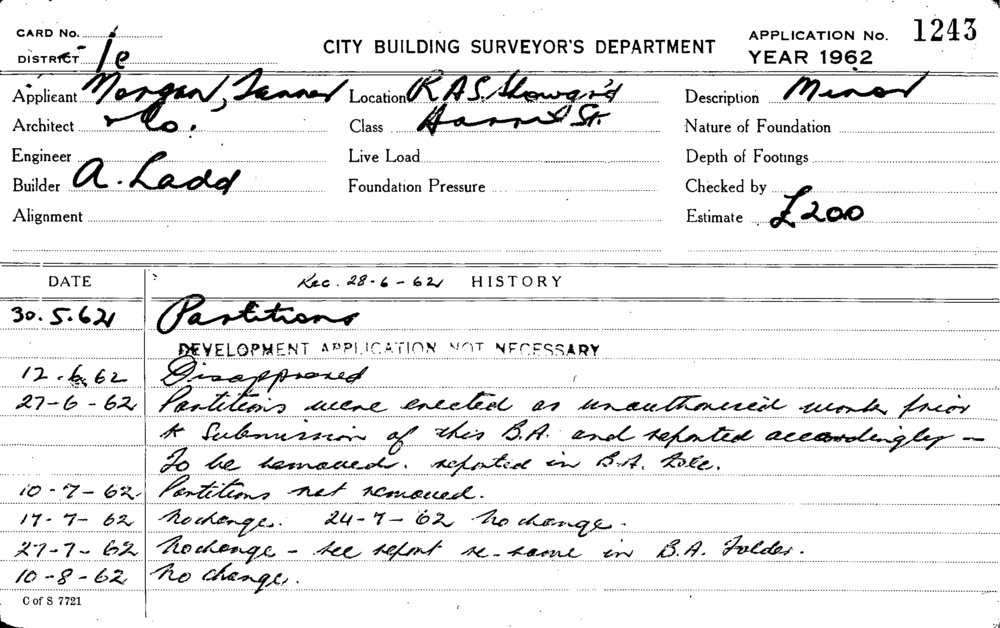 CARD No.
DISTRICT 1e
CITY BUILDING SURVEYOR'S DEPARTMENT
APPLICATION No. 1243
YEAR 1962
Applicant Morgan, Tanner Location R A S. Showgr'd Description Minor
Architect & Co. Class Harris St. Nature of Foundation
Engineer Live Load Depth of Footings
Builder A. Ladd Foundation Pressure Checked by
Alignment Estimate £200
DATE Rec. 28-6-62 HISTORY
30.5.62 Partitions
DEVELOPMENT APPLICATION NOT NECESSARY
12.6.62 Disapproved
27-6-62 Partitions were erected as unauthorised work prior
to submission of this B.A. and reported accordingly -
To be removed. reported in B.A. Fole.
10-7-62 Partitions not removed.
17-7-62 No change. 24-7-62 No change.
27-7-62 No change - see report re-same in B.A. Folder.
10-8-62 No change.
C of S 7721